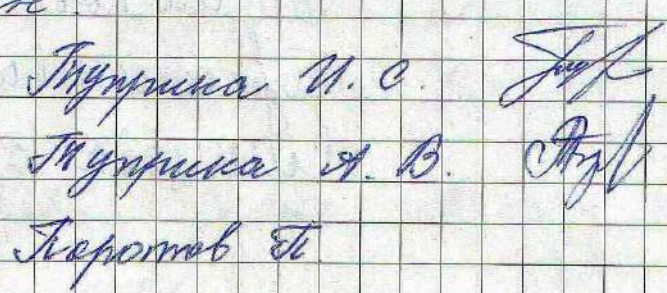 Туприна И. С.
Туприна А. В.
Коротов П